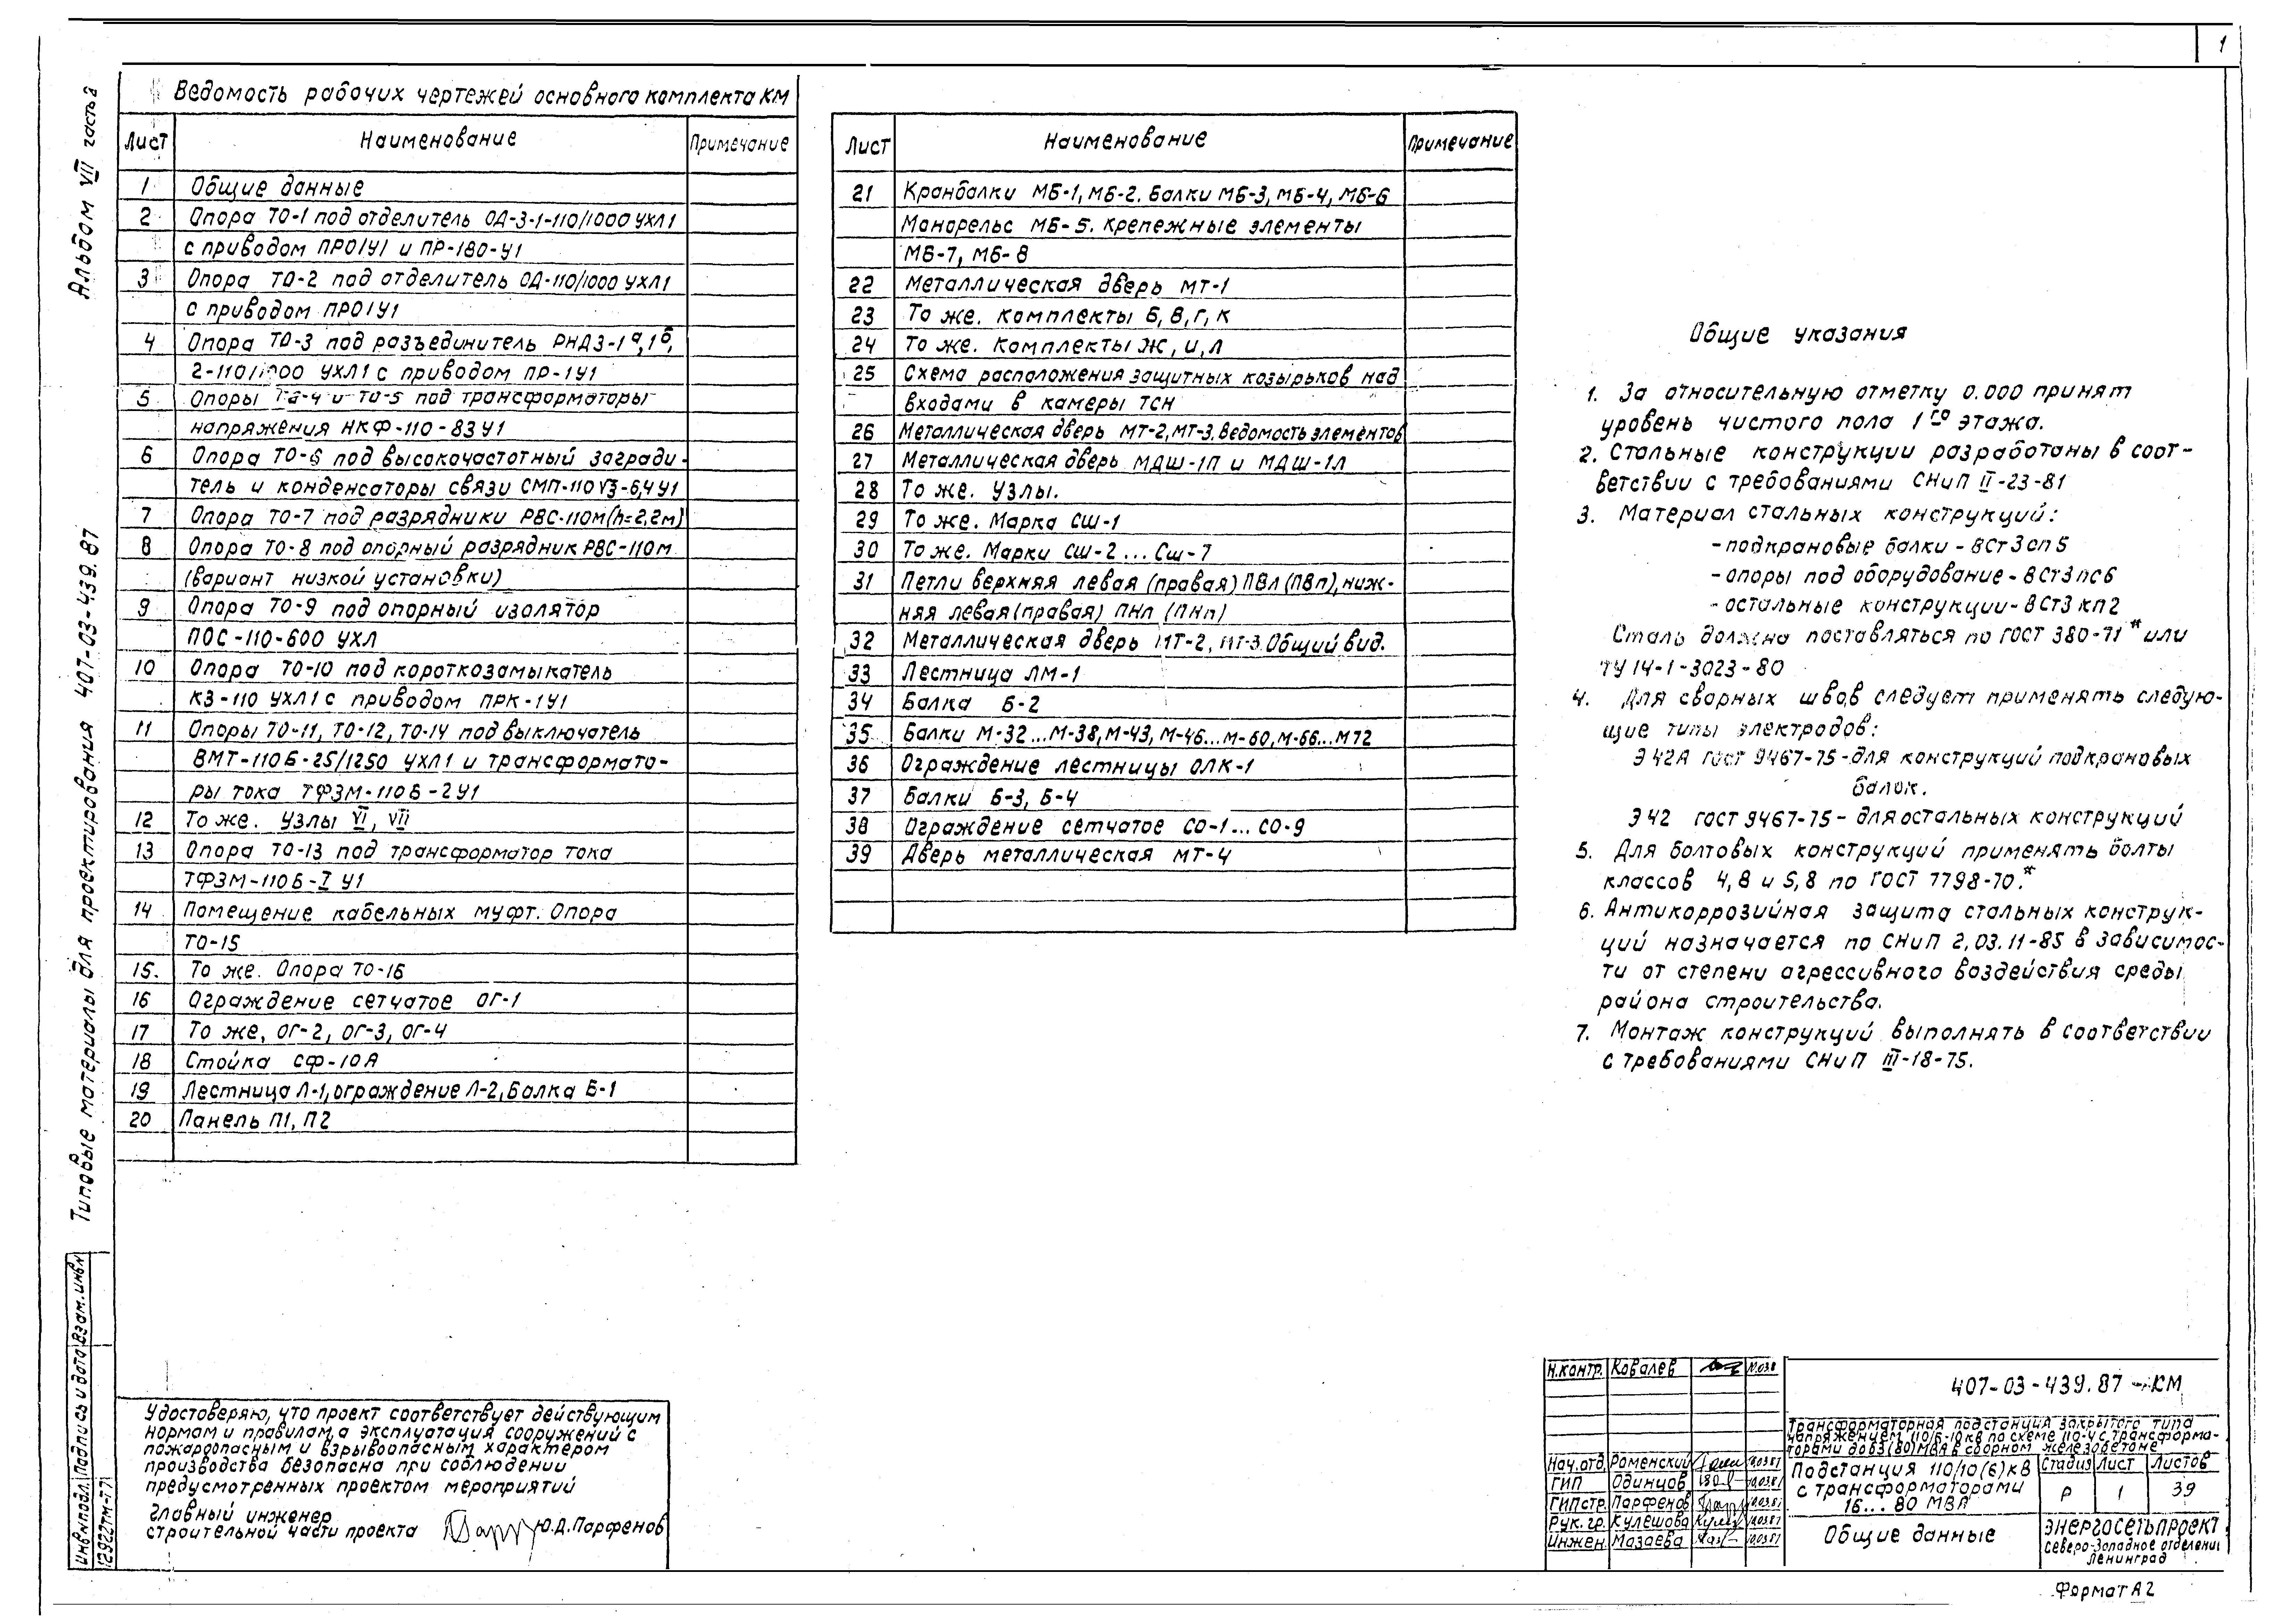 1
Альбом VII часть 2
Типовые материалы для проектирования 407-03-439.87
Ведомость рабочих чертежей основного комплекта КМ
Лист Наименование Примечание
1 Общие данные
2 Опора ТО-1 под отделитель ОД-3-1-110/1000 УХЛ1
с приводом ПРО1У1 и ПР-180-У1
3 Опора ТО-2 под отделитель ОД-110/1000 УХЛ1
с приводом ПРО1У1
4 Опора ТО-3 под разъединитель РНДЗ-1а,1б,
2-110/1000 УХЛ1 с приводом ПР-1У1
5 Опоры ТО-4 и ТО-5 под трансформаторы
напряжения НКФ-110-83У1
6 Опора ТО-6 под высокочастотный загради-
тель и конденсаторы связи СМП-110√3-6,4У1
7 Опора ТО-7 под разрядники РВС-110м(h=2,2м)
8 Опора ТО-8 под опорный разрядник РВС-110м
(вариант низкой установки)
9 Опора ТО-9 под опорный изолятор
ПОС-110-600 УХЛ
10 Опора ТО-10 под короткозамыкатель
КЗ-110 УХЛ1 с приводом ПРК-1У1
11 Опоры ТО-11, ТО-12, ТО-14 под выключатель
ВМТ-110Б-25/1250 УХЛ1 и трансформато-
ры тока ТФЗМ-110Б-2У1
12 То же. Узлы VI, VII
13 Опора ТО-13 под трансформатор тока
ТФЗМ-110Б-I У1
14 Помещение кабельных муфт. Опора
ТО-15
15. То же. Опора ТО-16
16 Ограждение сетчатое ОГ-1
17 То же, ОГ-2, ОГ-3, ОГ-4
18 Стойка СФ-10А
19 Лестница Л-1, ограждение Л-2, Балка Б-1
20 Панель П1, П2
Лист Наименование Примечание
21 Кранбалки МБ-1, МБ-2. Балки МБ-3, МБ-4, МБ-6
Монорельс МБ-5. Крепежные элементы
МБ-7, МБ-8
22 Металлическая дверь МТ-1
23 То же. Комплекты Б, В, Г, К
24 То же. Комплекты Ж, И, Л
25 Схема расположения защитных козырьков над
входами в камеры ТСН
26 Металлическая дверь МТ-2, МТ-3. Ведомость элементов
27 Металлическая дверь МДШ-1П и МДШ-1Л
28 То же. Узлы.
29 То же. Марка СШ-1
30 То же. Марки СШ-2...СШ-7
31 Петли верхняя левая (правая) ПВл (ПВп), ниж-
няя левая (правая) ПНл (ПНп)
32 Металлическая дверь МТ-2, МТ-3. Общий вид.
33 Лестница ЛМ-1
34 Балка Б-2
35 Балки М-32...М-38, М-43, М-46...М-60, М-66...М72
36 Ограждение лестницы ОЛК-1
37 Балки Б-3, Б-4
38 Ограждение сетчатое СО-1...СО-9
39 Дверь металлическая МТ-4
Общие указания
1. За относительную отметку 0.000 принят
уровень чистого пола 1го этажа.
2. Стальные конструкции разработаны в соот-
ветствии с требованиями СНиП II-23-81
3. Материал стальных конструкций:
-подкрановые балки-ВСт3сп5
-опоры под оборудование-ВСт3пс6
-остальные конструкции-ВСт3кп2
Сталь должна поставляться по ГОСТ 380-71* или
ТУ 14-1-3023-80
4. Для сварных швов следует применять следую-
щие типы электродов:
Э42А ГОСТ 9467-75-для конструкций подкрановых
балок.
Э42 ГОСТ 9467-75-для остальных конструкций
5. Для болтовых конструкций применять болты
классов 4,8 и 5,8 по ГОСТ 7798-70.*
6. Антикоррозийная защита стальных конструк-
ций назначается по СНиП 2.03.11-85 в зависимос-
ти от степени агрессивного воздействия среды
района строительства.
7. Монтаж конструкций выполнять в соответствии
с требованиями СНиП III-18-75.
Удостоверяю, что проект соответствует действующим
нормам и правилам, а эксплуатация сооружений с
пожароопасным и взрывоопасным характером
производства безопасна при соблюдении
предусмотренных проектом мероприятий
главный инженер
строительной части проекта Ю.Д.Парфенов
Инв№подл. Подпись и дата Взам.инв№
12922тм-т7
Н.контр. Ковалев
Нач.отд. Роменский 10.03.87
ГИП Одинцов 10.03.87
ГИПстр. Парфенов 10.03.87
Рук.гр. Кулешова 10.03.87
Инжен. Мазаева 10.03.87
407-03-439.87-КМ
Трансформаторная подстанция закрытого типа
напряжением 110/6-10кв по схеме 110-4 с трансформа-
торами до 63(80)МВА в сборном железобетоне
Подстанция 110/10(6)кв
с трансформаторами
16...80 МВА
Стадия Лист Листов
Р 1 39
Общие данные
ЭНЕРГОСЕТЬПРОЕКТ
Северо-Западное отделение
Ленинград
Формат А2